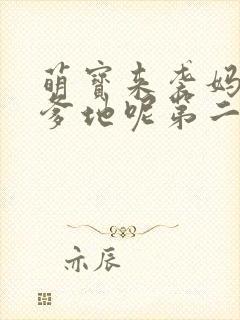 萌宝来袭妈
爹地呢第二
亦辰